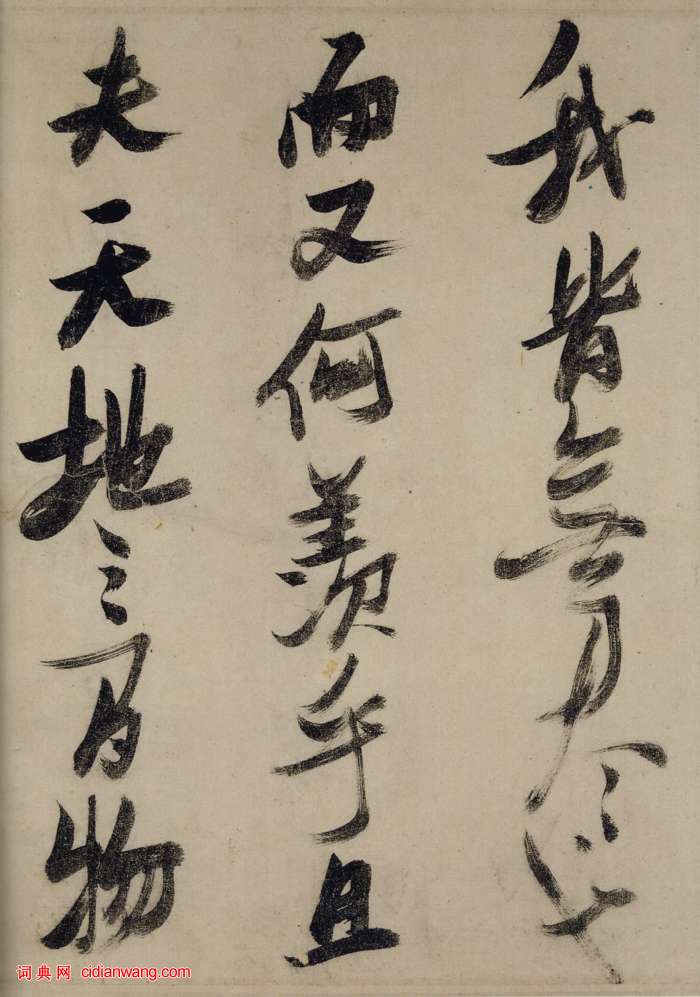 我皆無盡也
而又何羨乎且
夫天地之間物
词典网 cidianwang.com